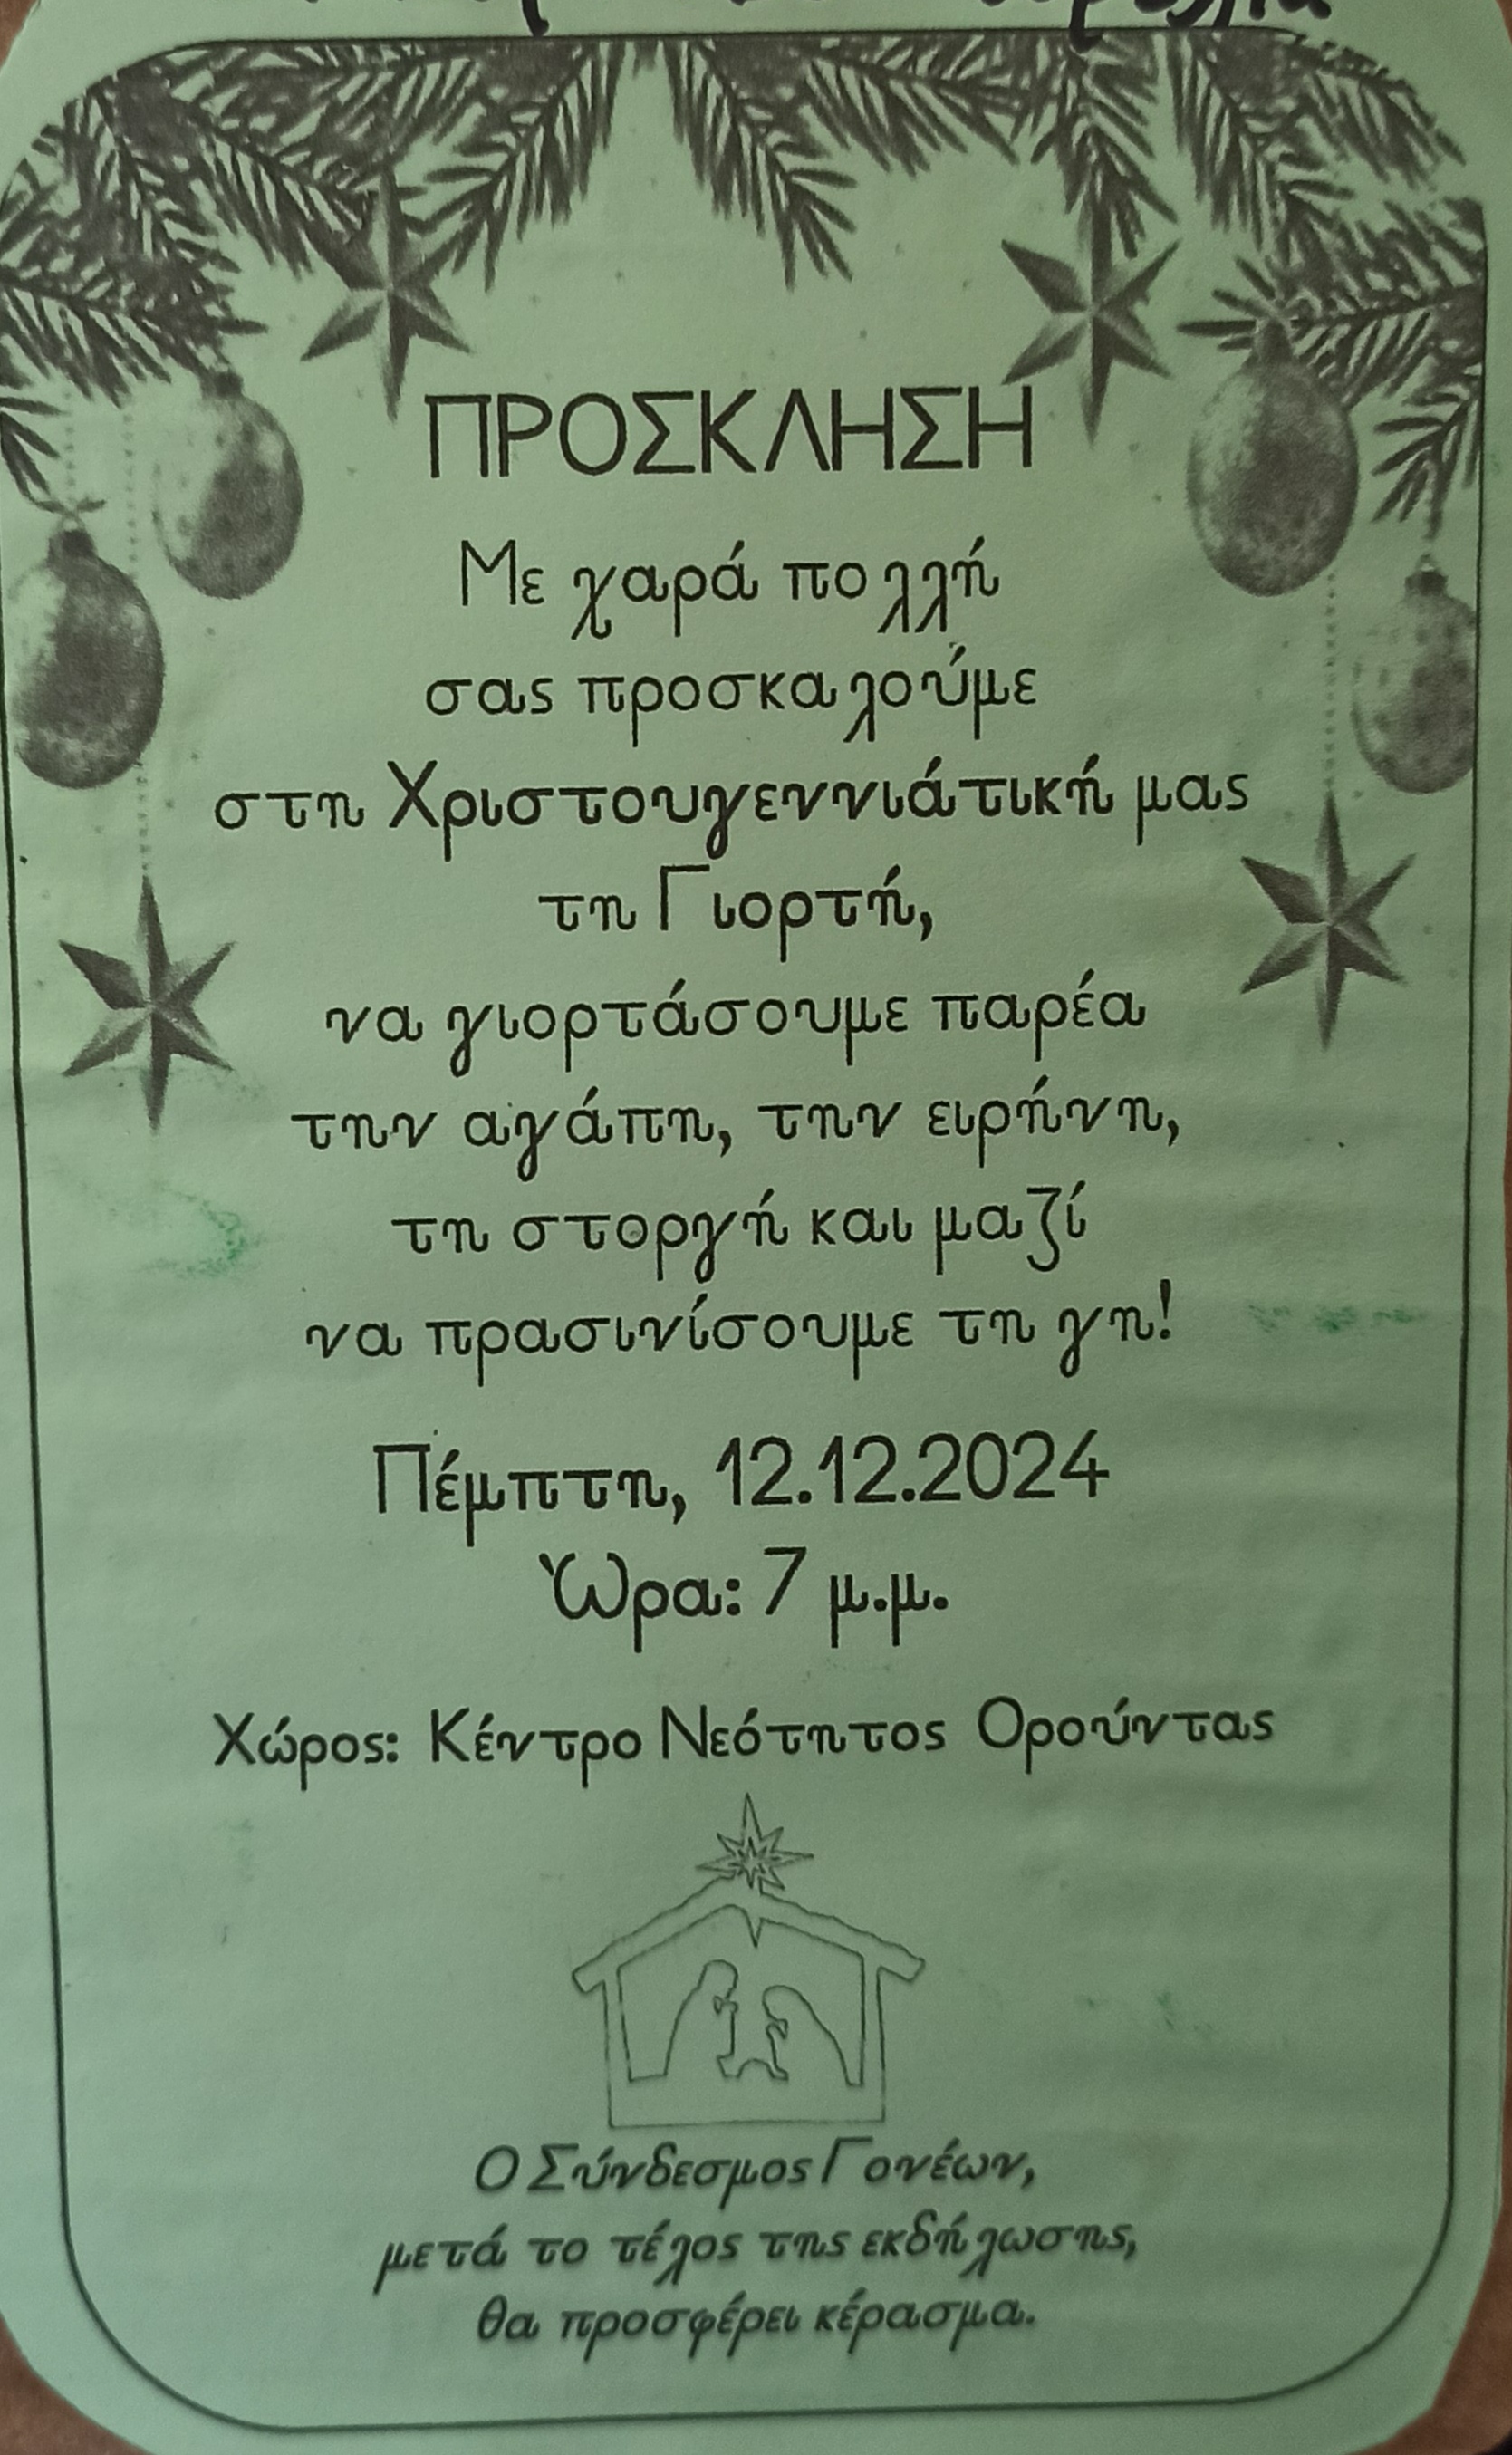 ΠΡΟΣΚΛΗΣΗ
Με χαρά πολλή
σας προσκαλούμε
στη Χριστουγεννιάτικη μας
τη Γιορτή,
να γιορτάσουμε παρέα
την αγάπη, την ειρήνη,
τη στοργή και μαζί
να πρασινίσουμε τη γη!
Πέμπτη, 12.12.2024
Ώρα: 7 μ.μ.
Χώρος: Κέντρο Νεότητος Ορούντας
Ο Σύνδεσμος Γονέων,
μετά το τέλος της εκδήλωσης,
θα προσφέρει κέρασμα.